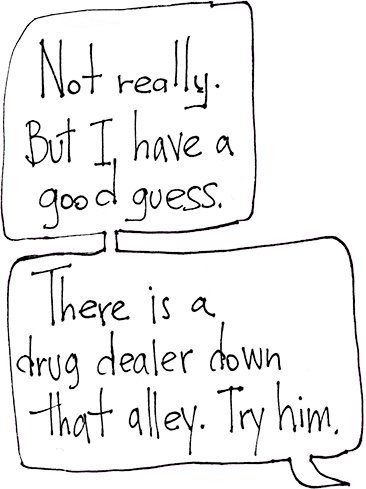 Not really.
But I have a
good guess.
There is a
drug dealer down
that alley. Try him.